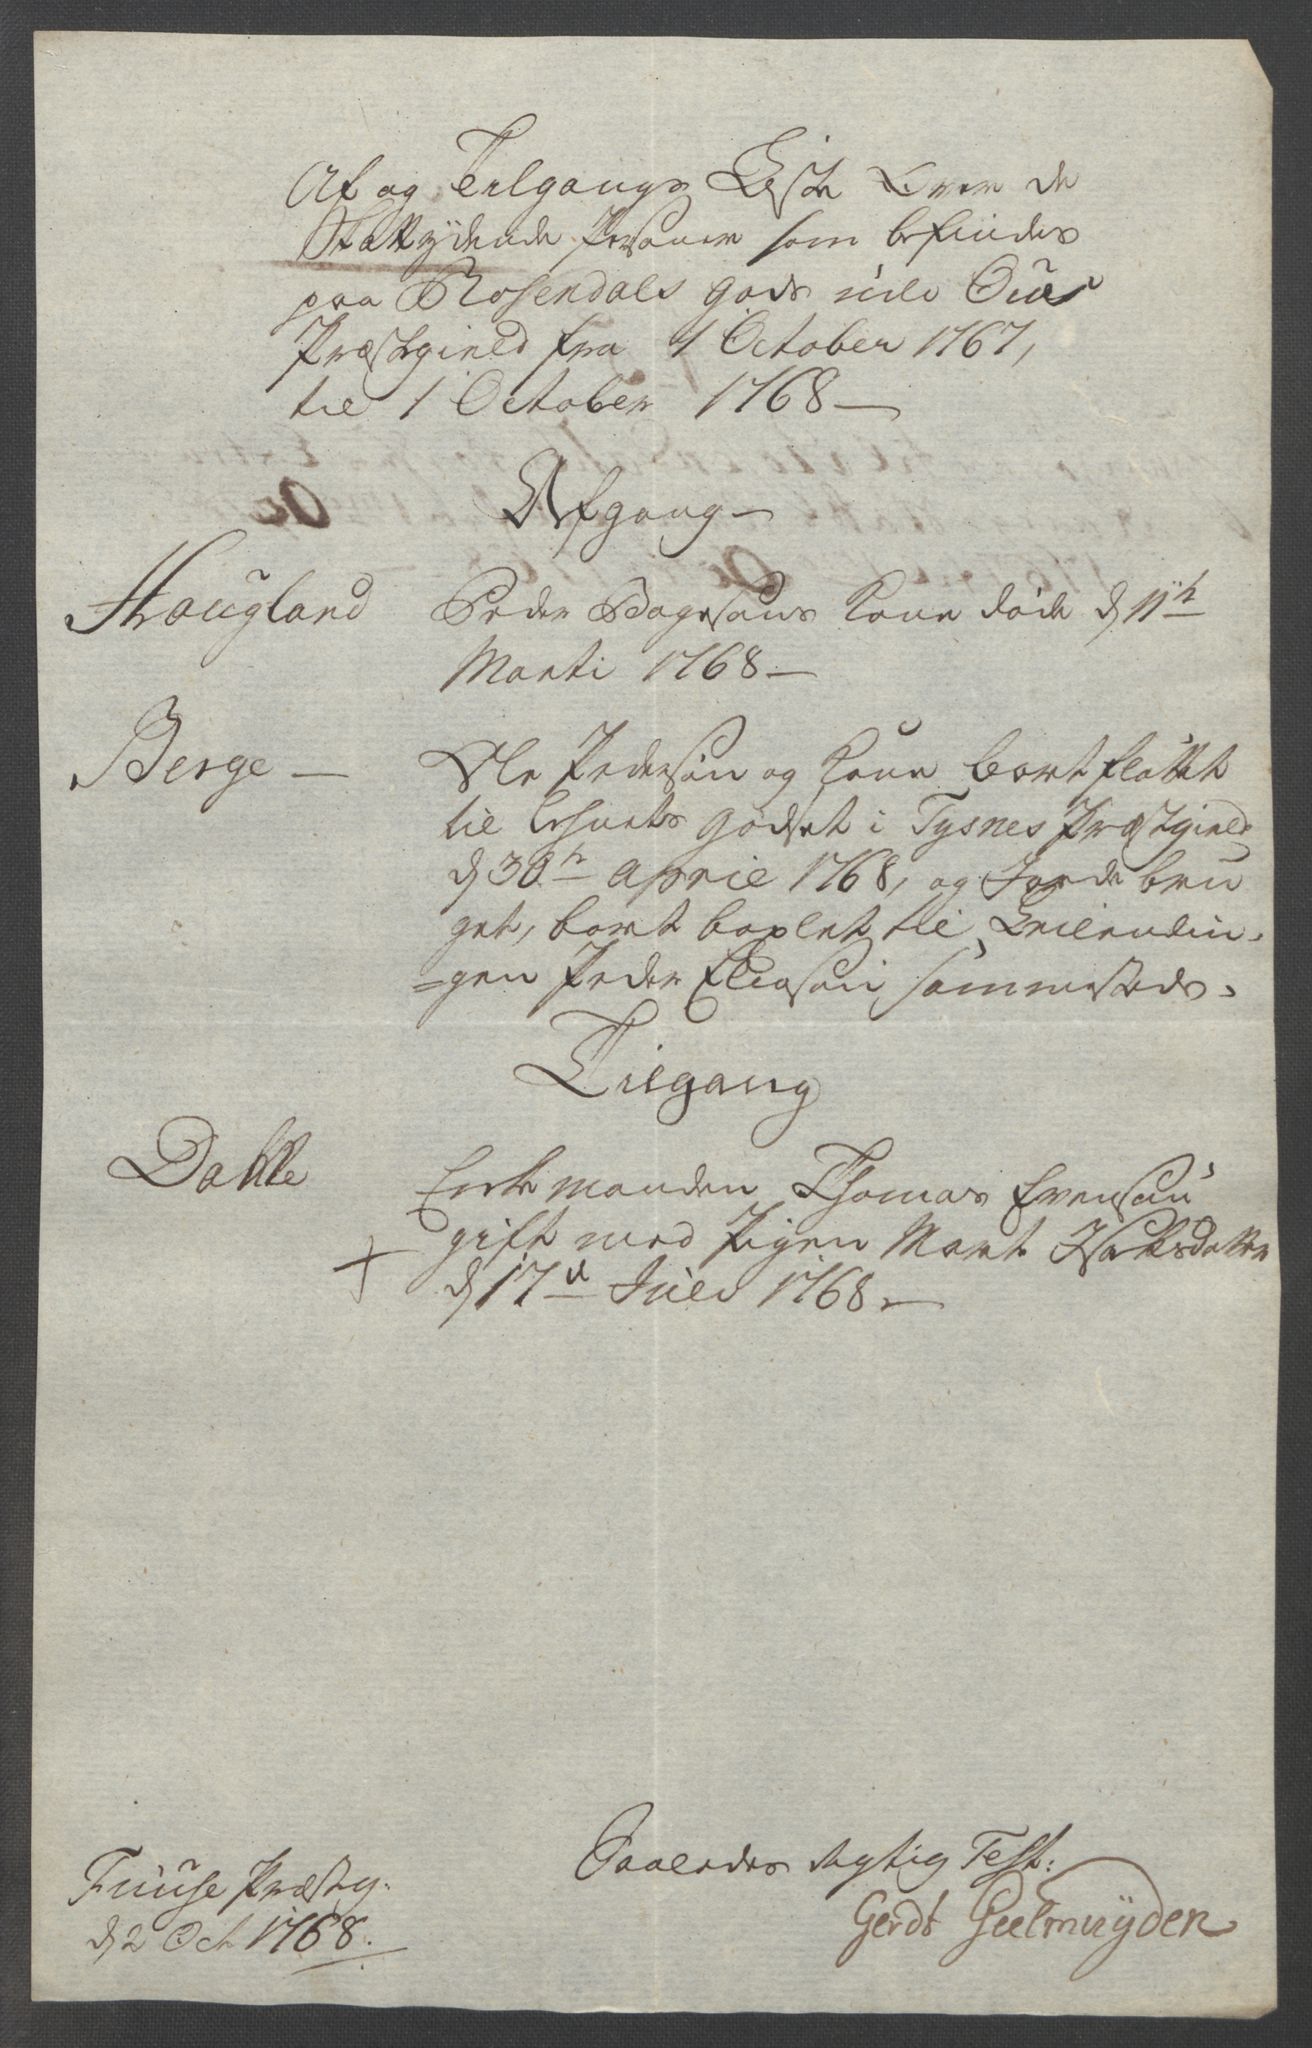 Af og Tilgangs Liste Over de
Skattÿdende Persohner som befindes
paa Rosendals gods udi Ous
Præstegield fra 1 October 1767,
til 1 October 1768 —
Afgang —
Hougland Peder Bagesøns Kone døde d 11te
Marti 1768 —
Berge — Ole Pedersøn og Kone bort fløttet
til Lehnets godset i Tysnes Præstegield
d 30te April 1768, og Jorde bru
get, bort bøxlet til Leilendin-
=gen Peder Eliasøn sammesteds.
Tilgang
Dahle Enke manden Thomas Evensøn
gift med Pigen Mart Isaksdatter
d 17de Juli 1768 —
Saaledes rigtig Test:
Gerdt Geelmuÿden
Fuuse Præsteg:
d 2 Oct 1768.